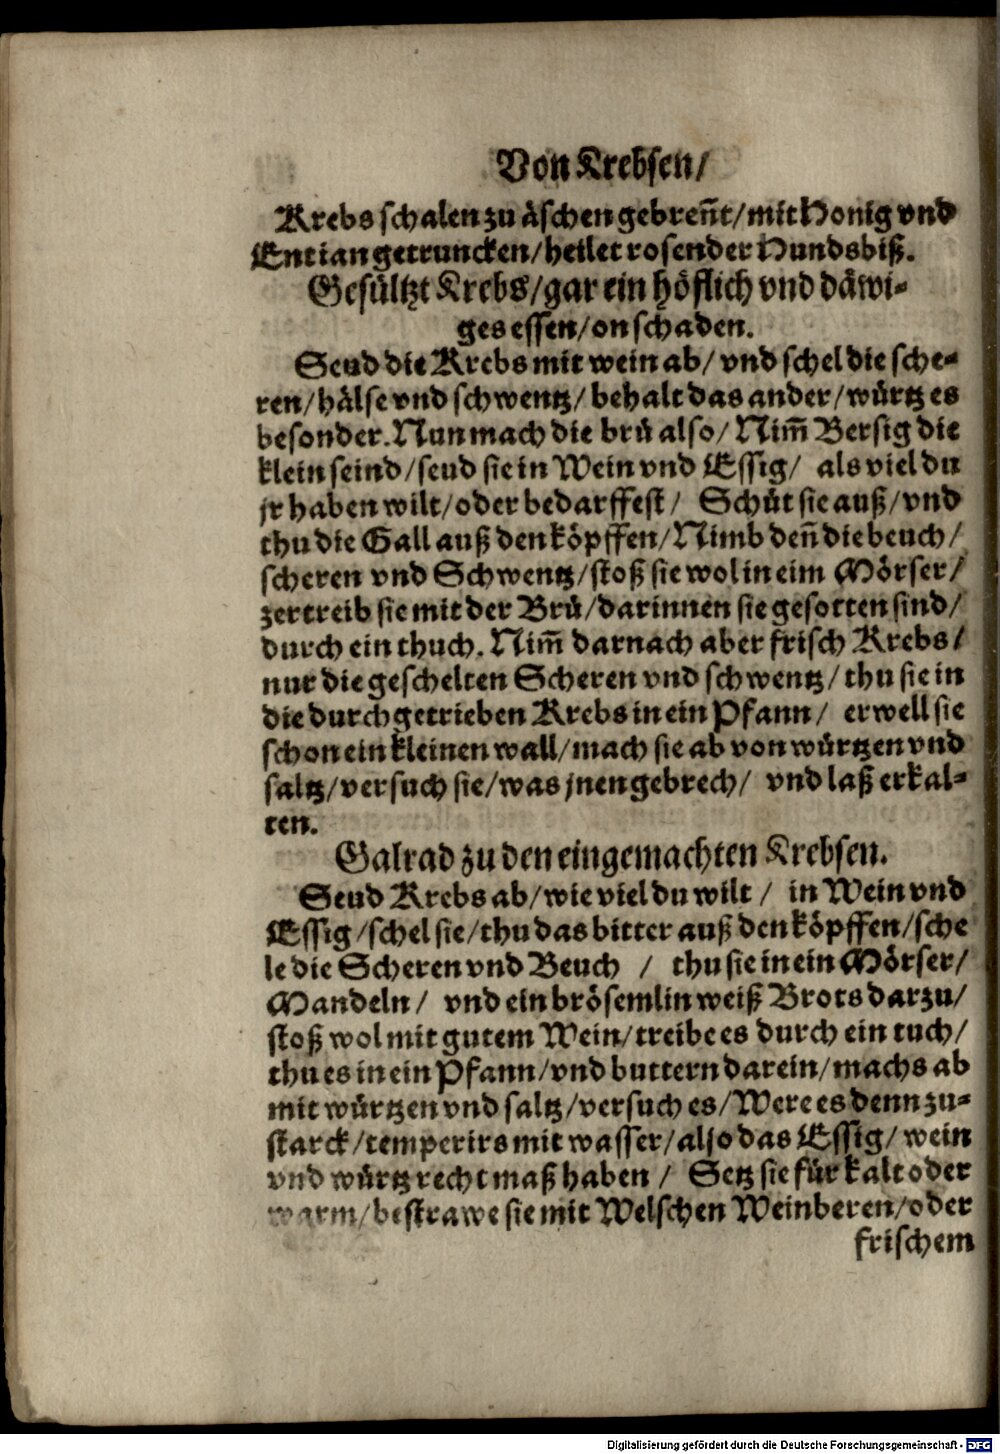 Von Krebsen/
Krebs schalen zu äschen gebreñt/mit Honig vnd
Entian getruncken/heilet rosender Hundsbiß.
Gesültzt Krebs/gar ein höflich vnd däwi-
ges essen/on schaden.
Seud die Krebs mit wein ab/ vnd schel die sche-
ren/hälse vnd schwentz/ behalt das ander/würtz es
besonder. Nun mach die brü also/ Nim̃ Bersig die
klein seind/seud sie in Wein vnd Essig/ als viel du
jr haben wilt/oder bedarffest/ Schüt sie auß/vnd
thu die Gall auß den köpffen/Nimb deñ die beuch/
scheren vnd Schwentz/stoß sie wol in eim Mörser/
zertreib sie mit der Brü/darinnen sie gesotten sind/
durch ein thuch. Nim̃ darnach aber frisch Krebs/
nur die geschelten Scheren vnd schwentz/thu sie in
die durchgetrieben Krebs in ein Pfann/ erwell sie
schon ein kleinen wall/mach sie ab von würtzen vnd
saltz/versuch sie/was jnen gebrech/ vnd laß erkal-
ten.
Galrad zu den eingemachten Krebsen.
Seud Krebs ab/wie viel du wilt/ in Wein vnd
Essig/schel sie/thu das bitter auß den köpffen/sche
le die Scheren vnd Beuch / thu sie in ein Mörser/
Mandeln/ vnd ein brösemlin weiß Brots darzu/
stoß wol mit gutem Wein/treibe es durch ein tuch/
thu es in ein Pfann/vnd buttern darein/machs ab
mit würtzen vnd saltz/versuch es/Were es denn zu-
starck/temperirs mit wasser/also das Essig/wein
vnd würtz recht maß haben / Setz sie für kalt oder
warm/bestrawe sie mit Welschen Weinberen/oder
frischem
Digitalisierung gefördert durch die Deutsche Forschungsgemeinschaft - DFG